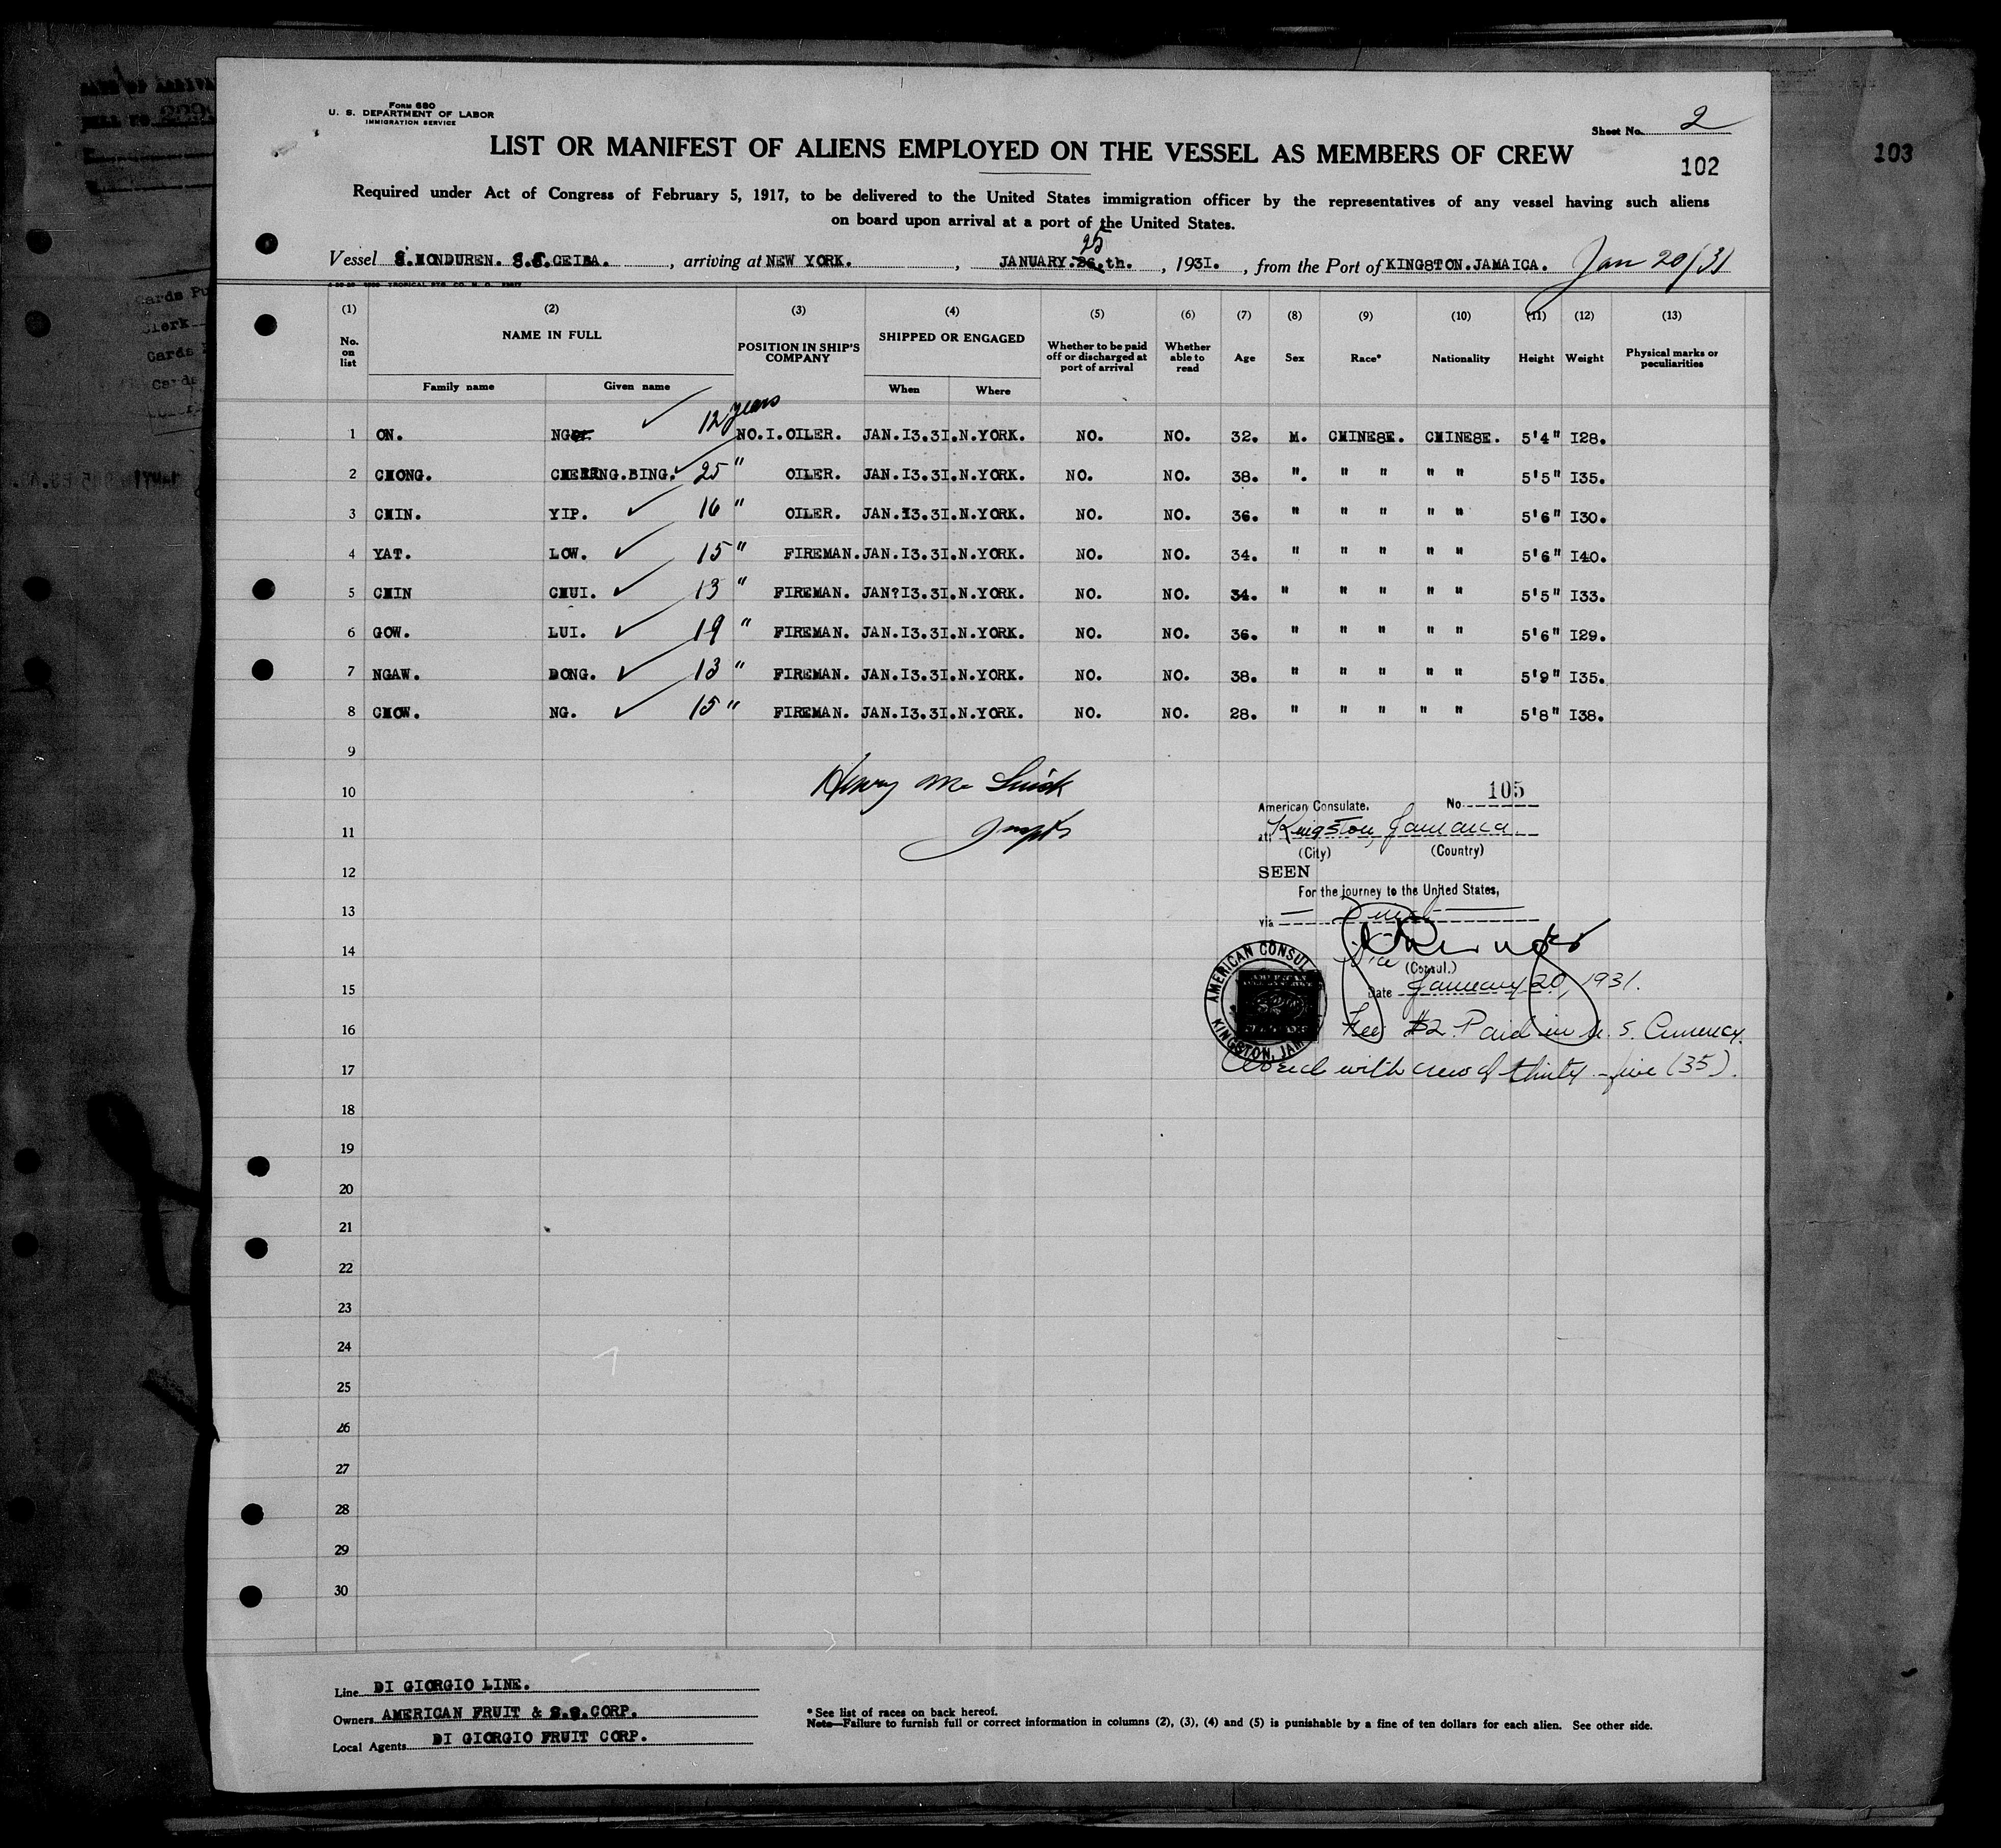 Form 680
U. S. DEPARTMENT OF LABOR
IMMIGRATION SERVICE
Sheet No. 2
LIST OR MANIFEST OF ALIENS EMPLOYED ON THE VESSEL AS MEMBERS OF CREW
102
103
Required under Act of Congress of February 5, 1917, to be delivered to the United States immigration officer by the representatives of any vessel having such aliens
on board upon arrival at a port of the United States.
25
Vessel S.HONDUREN. S.S.CEIBA. , arriving at NEW YORK. , JANUARY.26.th. , 1931. , from the Port of KINGSTON.JAMAICA. Jan 20/31
(1) (2) (3) (4) (5) (6) (7) (8) (9) (10) (11) (12) (13)
No. on list NAME IN FULL POSITION IN SHIP'S COMPANY SHIPPED OR ENGAGED Whether to be paid off or discharged at port of arrival Whether able to read Age Sex Race* Nationality Height Weight Physical marks or peculiarities
Family name Given name When Where
1 ON. NG 12 years NO.I.OILER. JAN.I3.3I.N.YORK. NO. NO. 32. M. CHINESE. CHINESE. 5'4" I28.
2 CHONG. BING. 25 " OILER. JAN.I3.3I.N.YORK. NO. NO. 38. ". " " " " 5'5" I35.
3 CHIN. YIP. 16 " OILER. JAN.I3.3I.N.YORK. NO. NO. 36. " " " " " 5'6" I30.
4 YAT. LOW. 15 " FIREMAN. JAN.I3.3I.N.YORK. NO. NO. 34. " " " " " 5'6" I40.
5 CHIN CHUI. 13 " FIREMAN. JAN?I3.3I.N.YORK. NO. NO. 34. " " " " " 5'5" I33.
6 GOW. LUI. 19 " FIREMAN. JAN.I3.3I.N.YORK. NO. NO. 36. " " " " " 5'6" I29.
7 NGAW. DONG. 13 " FIREMAN. JAN.I3.3I.N.YORK. NO. NO. 38. " " " " " 5'9" I35.
8 CHOW. NG. 15 " FIREMAN. JAN.I3.3I.N.YORK. NO. NO. 28. " " " " " 5'8" I38.
9
10
11
12
13
14
15
16
17
18
19
20
21
22
23
24
25
26
27
28
29
30
Henry
American Consulate, No. 105
at Kingston, Jamaica
(City) (Country)
SEEN
For the journey to the United States,
via
Vice (Consul.)
Date January 20, 1931.
Fee $2 Paid in U. S. Currency.
with crew of thirty-five (35).
AMERICAN CONSUL
KINGSTON, JAM
Line DI GIORGIO LINE.
Owners AMERICAN FRUIT & S.S.CORP.
Local Agents DI GIORGIO FRUIT CORP.
* See list of races on back hereof.
Note—Failure to furnish full or correct information in columns (2), (3), (4) and (5) is punishable by a fine of ten dollars for each alien. See other side.